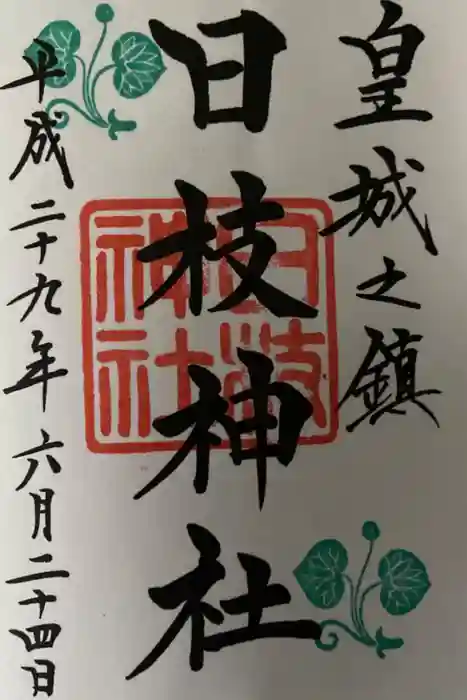 皇城之鎮
日枝神社
平成二十九年六月二十四日
日枝
神社